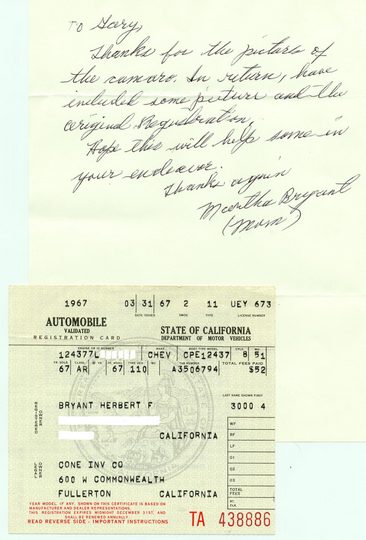 To Gary,
Thanks for the pictures of
the camaro. In return, have
included some picture and the
original Registration,
Hope this will help some in
your endeavor.
Thanks again
Martha Bryant
(Mom)
1967 03 31 67 2 11 UEY 673
DATE ISSUED LICENSE NUMBER
AUTOMOBILE
VALIDATED
REGISTRATION CARD
STATE OF CALIFORNIA
DEPARTMENT OF MOTOR VEHICLES
124377L CHEV CPE12437 8 51
TOTAL FEES PAID
67 AR 67 110 A3506794 $52
LAST NAME SHOWN FIRST
BRYANT HERBERT F 3000 4
CALIFORNIA
CONE INV CO
600 W COMMONWEALTH
FULLERTON CALIFORNIA
TOTAL FEES
YEAR MODEL IF ANY, SHOWN ON THIS CERTIFICATE IS BASED ON
MANUFACTURER AND DEALER REPRESENTATIONS.
THIS REGISTRATION EXPIRES MIDNIGHT DECEMBER 31ST, AND
SHALL BE RENEWED ANNUALLY.
READ REVERSE SIDE - IMPORTANT INSTRUCTIONS
TA 438886